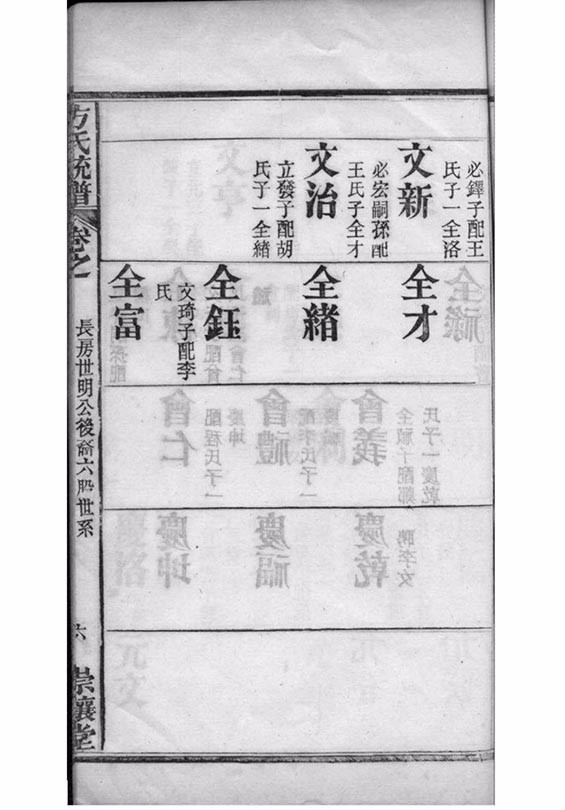 必鐸子配王
氏子一全洛
文新
必宏嗣孫配
王氏子全才
文治
立發子配胡
氏子一全緒
全才
全緒
全鈺
文琦子配李
氏
全富
方氏統譜
卷之
長房世明公後裔六股世系
六
崇讓堂